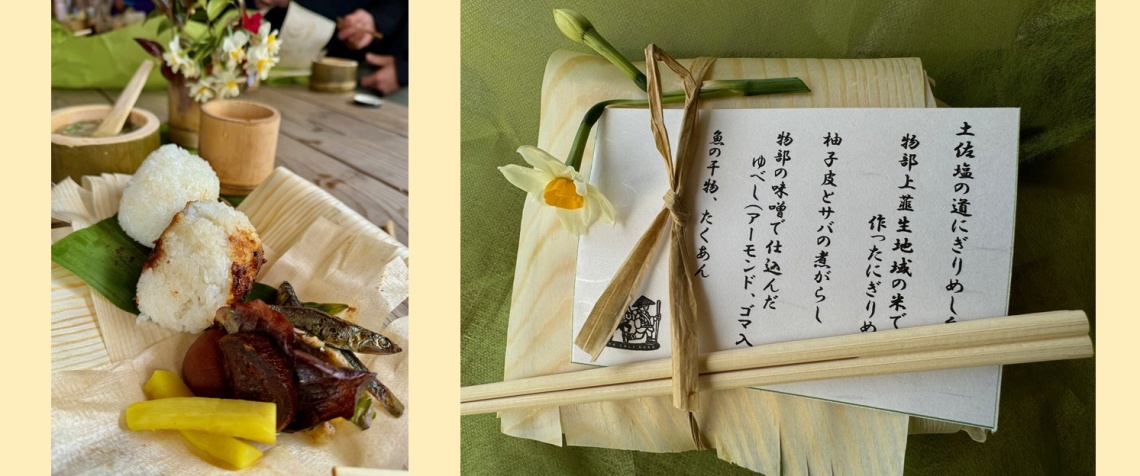 土佐塩の道にぎりめし
物部上韮生地域の米で
作ったにぎりめ
柚子皮とサバの煮がらし
物部の味噌で仕込んだ
ゆべし(アーモンド、ゴマ入
魚の干物、たくあん